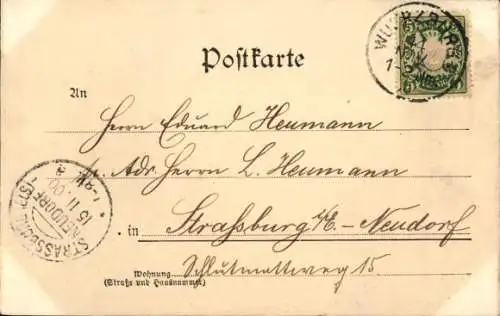 WÜRZBURG
Postkarte
An
Herrn Eduard Heumann
p. Adr. Herrn L. Heumann
in Straßburg i/E.-Neudorf
Wohnung Schlutmattweg 15
(Straße und Hausnummer)
STRASSBURG
NEUDORF (ELS)
15 11 00